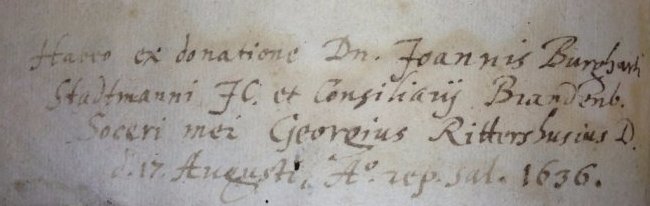 Habeo ex donatione Dn. Joannis Burghardi
Stadtmanni JC. et Consiliarij Brandenb.
Soceri mei Georgius Rittershusius D.
d. 17. Augusti, Aº. rep. sal. 1636.